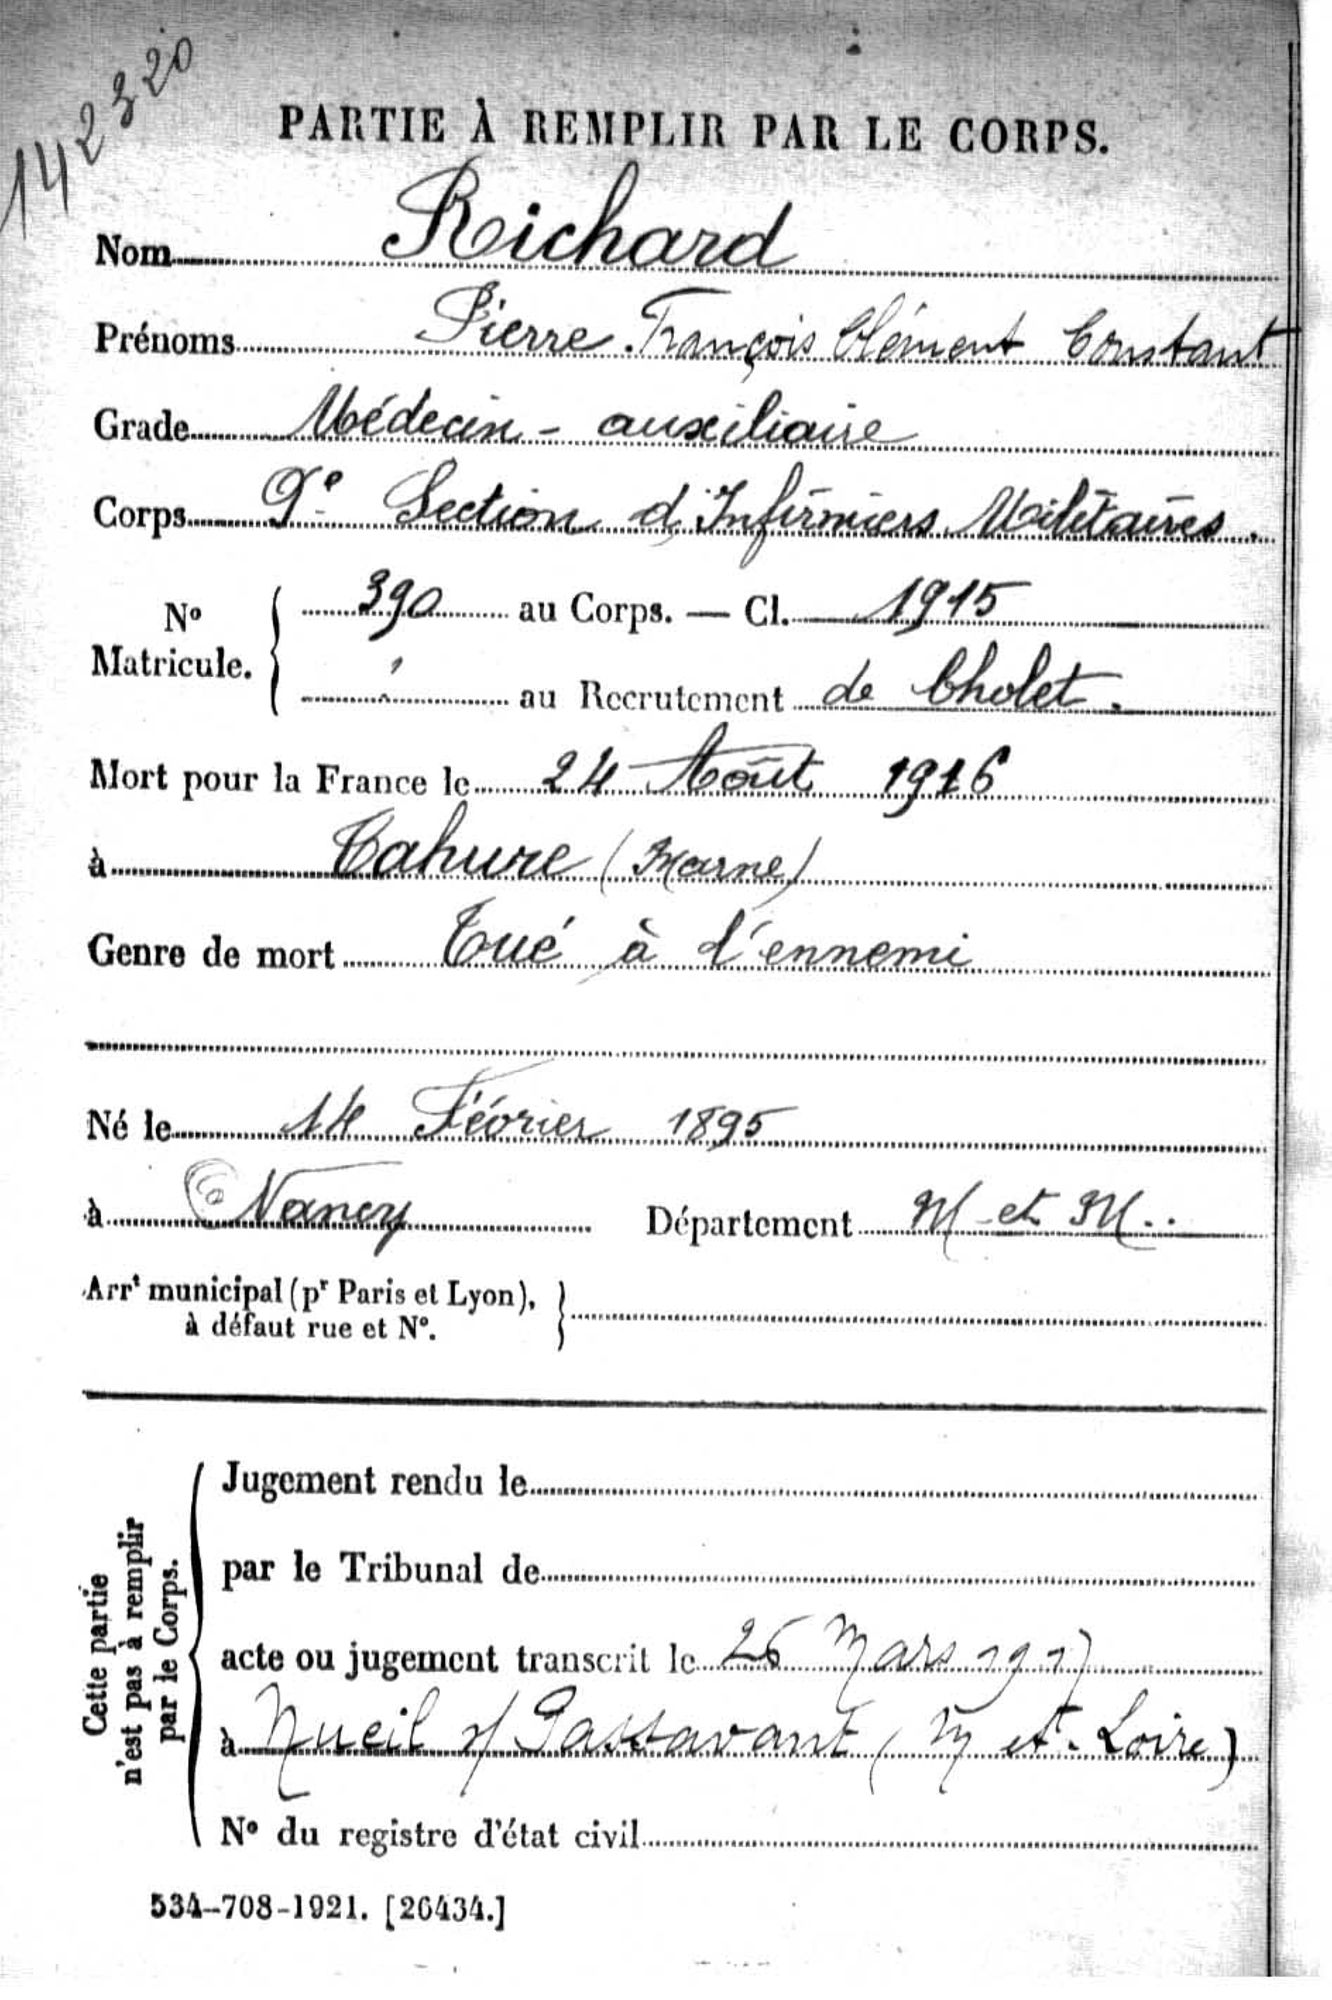 142320
PARTIE À REMPLIR PAR LE CORPS.
Nom Richard
Prénoms Pierre François Clément Constant
Grade Médecin - auxiliaire
Corps 9e Section d'Infirmiers Militaires.
No Matricule. 390 au Corps. — Cl. 1915
" au Recrutement de Cholet.
Mort pour la France le 24 Août 1916
à Tahure (Marne)
Genre de mort Tué à l'ennemi
Né le 14 Février 1895
à Nancy Département M et M.
Arrt municipal (pr Paris et Lyon),
à défaut rue et No.
Cette partie
n'est pas à remplir
par le Corps.
Jugement rendu le
par le Tribunal de
acte ou jugement transcrit le 26 Mars 1917
à Nueil s/ Passavant (M et. Loire)
No du registre d'état civil
534-708-1921. [26434.]